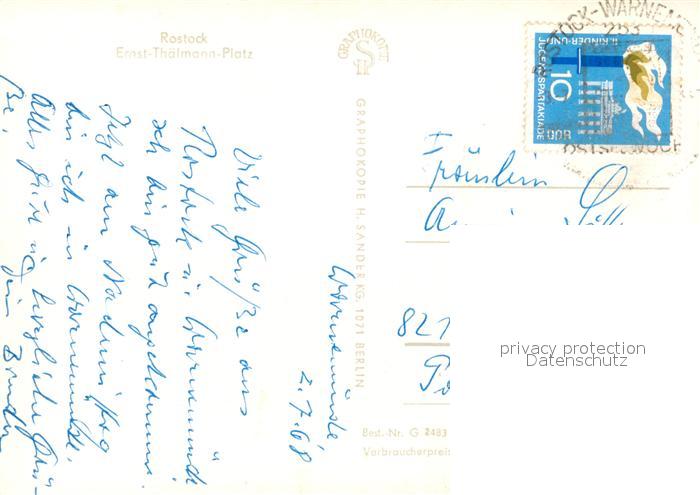 Rostock
Ernst-Thälmann-Platz
GRAPHOKOPIE
H S
GRAPHOKOPIE H. SANDER KG. 1071 BERLIN
Warnemünde
2.7.68
Viele Grüße aus
Rostock u. Warnemünde
ich bin gut angekommen.
Jetzt am Nachmittag
bin ich in Warnemünde.
Alles Gute u. herzliche Grü-
ße.
Dein Bruder
ROSTOCK-WARNEM
OSTSEEWOCHE
II. KINDER-UND
JUGENDSPARTAKIADE
10
DDR
Fräulein
821
Best.-Nr. G 2483
Verbraucherpreis
privacy protection
Datenschutz